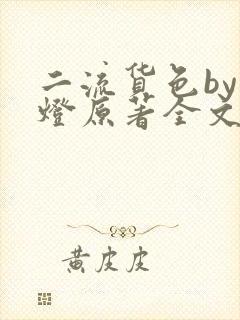 二流货色by
燈原著全文
黄皮皮